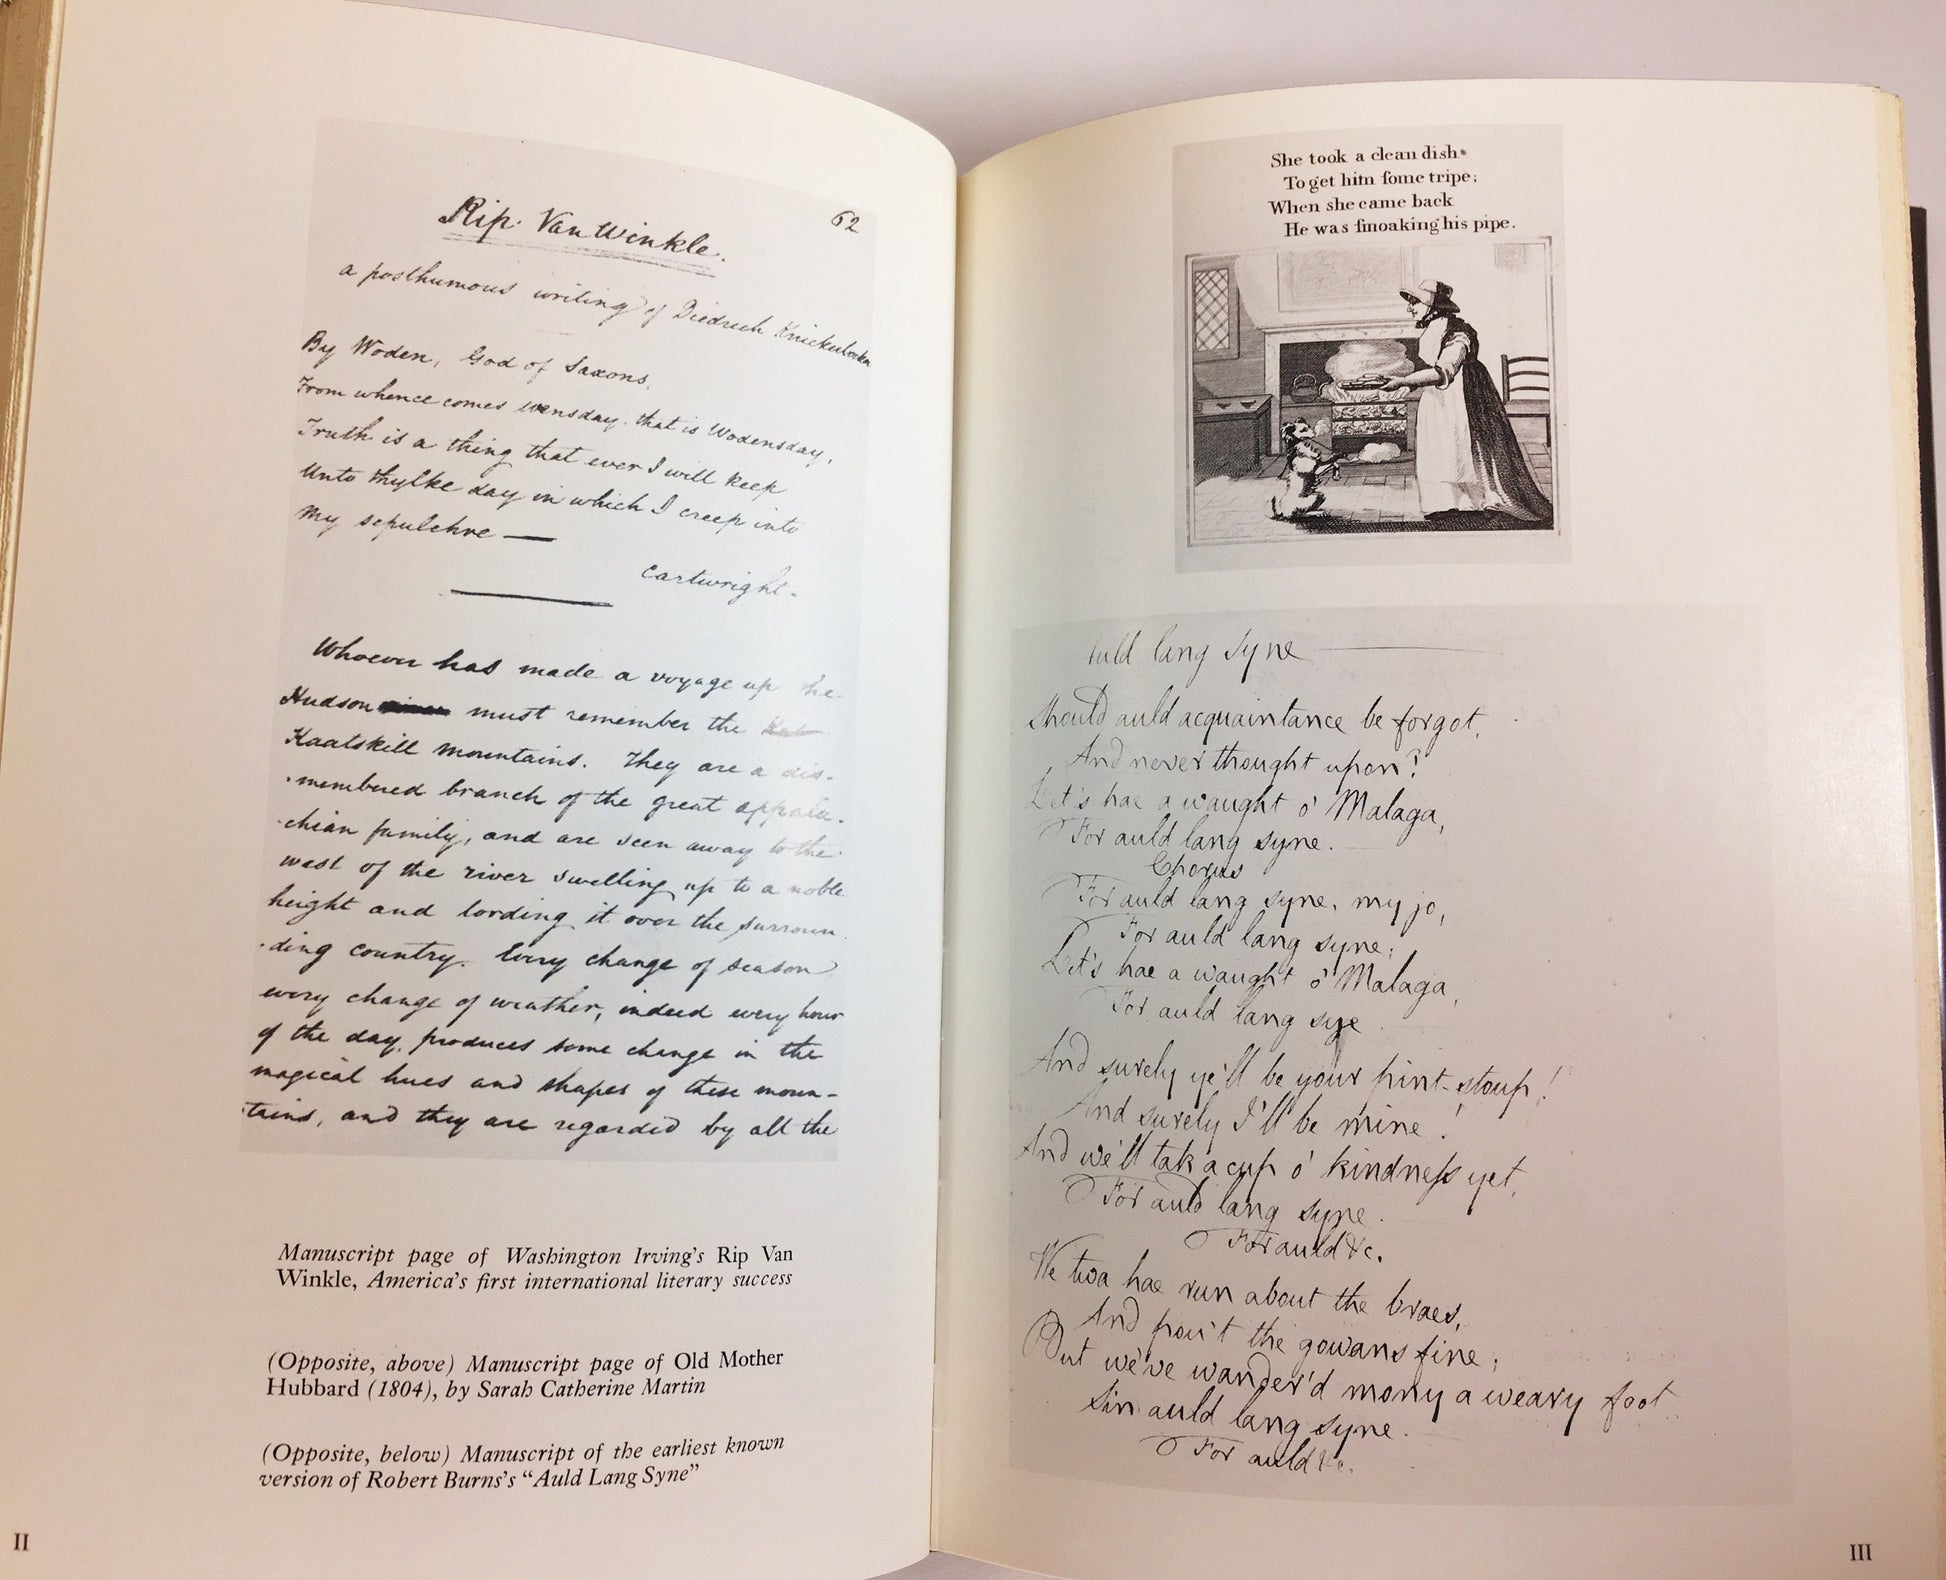 62
Rip Van Winkle.
a posthumous writing of Diedrich Knickerbocker
By Woden, God of Saxons,
From whence comes wensday, that is Wodensday,
Truth is a thing that ever I will keep
Unto thylke day in which I creep into
My sepulchre —
Cartwright.
Whoever has made a voyage up the
Hudson must remember the
Kaatskill mountains. They are a dis-
membered branch of the great appala-
chian family, and are seen away to the
west of the river swelling up to a noble
height and lording it over the surroun
ding country. Every change of season
every change of weather, indeed every hour
of the day, produces some change in the
magical hues and shapes of these moun-
tains, and they are regarded by all the
Manuscript page of Washington Irving's Rip Van
Winkle, America's first international literary success
(Opposite, above) Manuscript page of Old Mother
Hubbard (1804), by Sarah Catherine Martin
(Opposite, below) Manuscript of the earliest known
version of Robert Burns's "Auld Lang Syne"
II
She took a clean dish
To get him ſome tripe;
When she came back
He was ſmoaking his pipe.
Auld lang syne
Should auld acquaintance be forgot,
And never thought upon?
Let's hae a waught o' Malaga,
For auld lang syne.
Chorus
For auld lang syne, my jo,
For auld lang syne;
Let's hae a waught o' Malaga,
For auld lang syne
And surely ye'll be your pint-stoup!
And surely I'll be mine!
And we'll tak a cup o' kindneſs yet,
For auld lang syne.
For auld &c.
We twa hae run about the braes,
And pou't the gowans fine;
But we've wander'd mony a weary foot
Sin auld lang syne.
For auld &c.
III